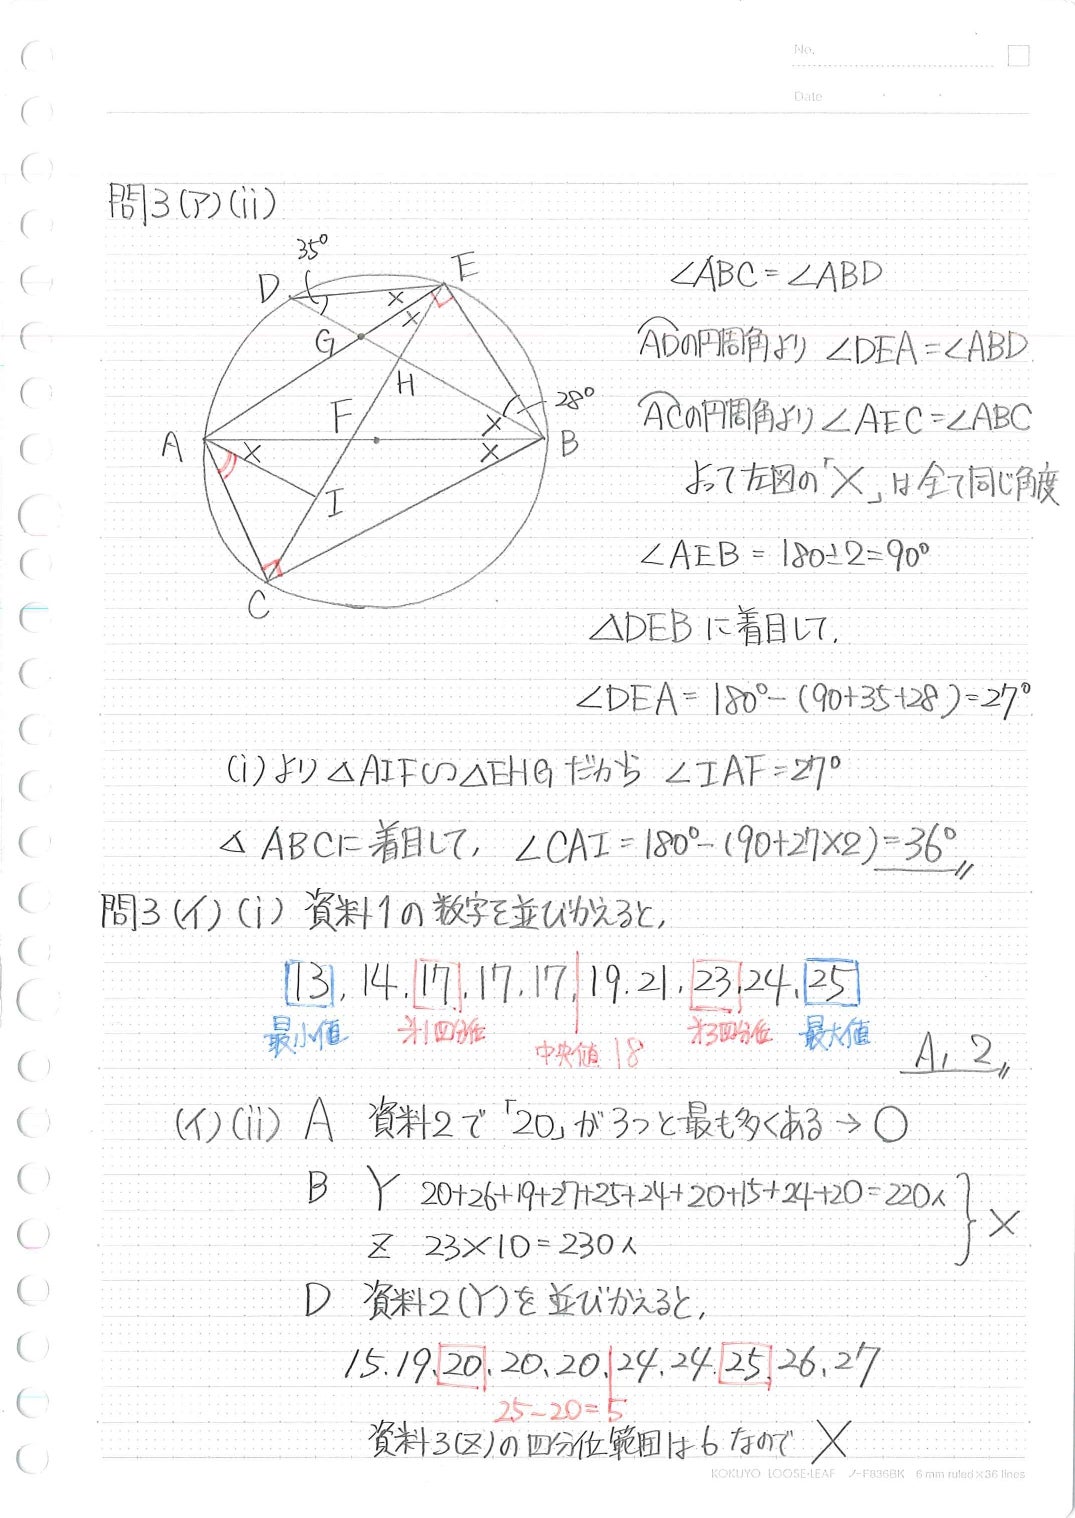 No.
Date
問3(ア)(ii)
35°
D
E
×
×
G
H
28°
F
×
A
×
B
×
I
C
∠ABC=∠ABD
ADの円周角より ∠DEA=∠ABD
ACの円周角より ∠AEC=∠ABC
よって左図の「×」は全て同じ角度
∠AEB=180÷2=90°
△DEBに着目して,
∠DEA=180°-(90+35+28)=27°
(i)より△AIF∽△EHGだから ∠IAF=27°
△ABCに着目して, ∠CAI=180°-(90+27×2)=36°
問3(イ)(i) 資料1の数字を並びかえると,
13, 14, 17, 17, 17, 19, 21, 23, 24, 25
最小値 第1四分位 中央値 18 第3四分位 最大値
A, 2
(イ)(ii) A 資料2で「20」が3つと最も多くある→○
B Y 20+26+19+27+25+24+20+15+24+20=220人
Z 23×10=230人
×
D 資料2(Y)を並びかえると,
15, 19, 20, 20, 20, 24, 24, 25, 26, 27
25-20=5
資料3(Z)の四分位範囲は6なので ×
KOKUYO LOOSE-LEAF ノ-F836BK 6 mm ruled×36 lines